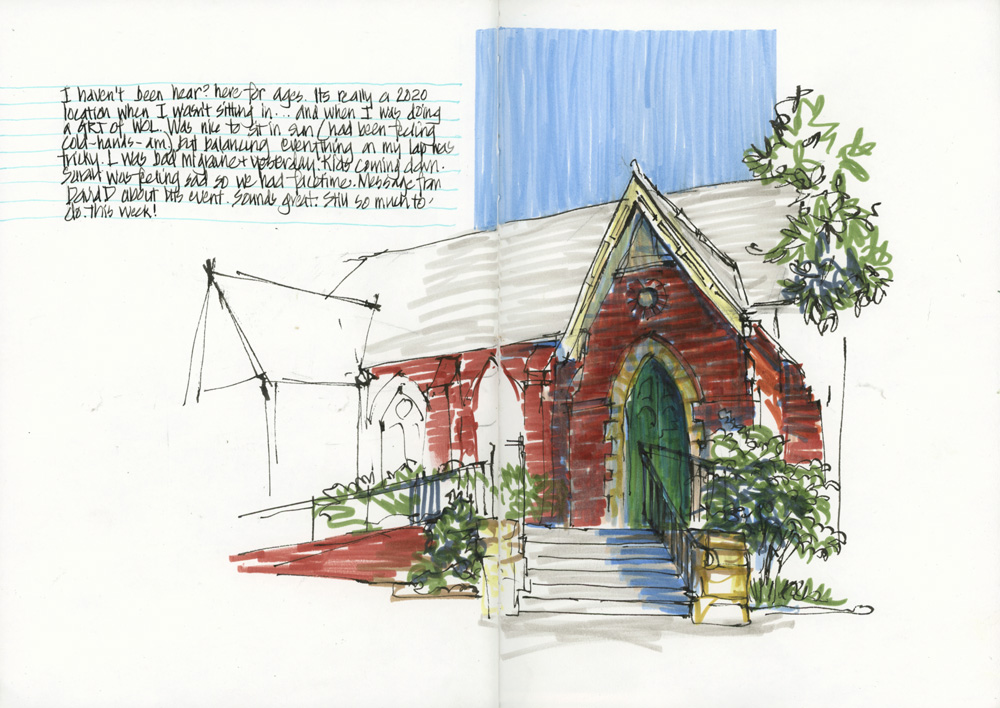 I haven't been hear? here for ages. Its really a 2020
location when I wasn't sitting in... and when I was doing
a GRT of WOL. Was nice to sit in sun (had been feeling
cold-hands-am) but balancing everything on my lap was
tricky. I was bad migraine+ yesterday. Kids coming down.
Sarah was feeling sad so we had facetime. Message from
DAVID about his event. Sounds great. Still so much to
do. this week!